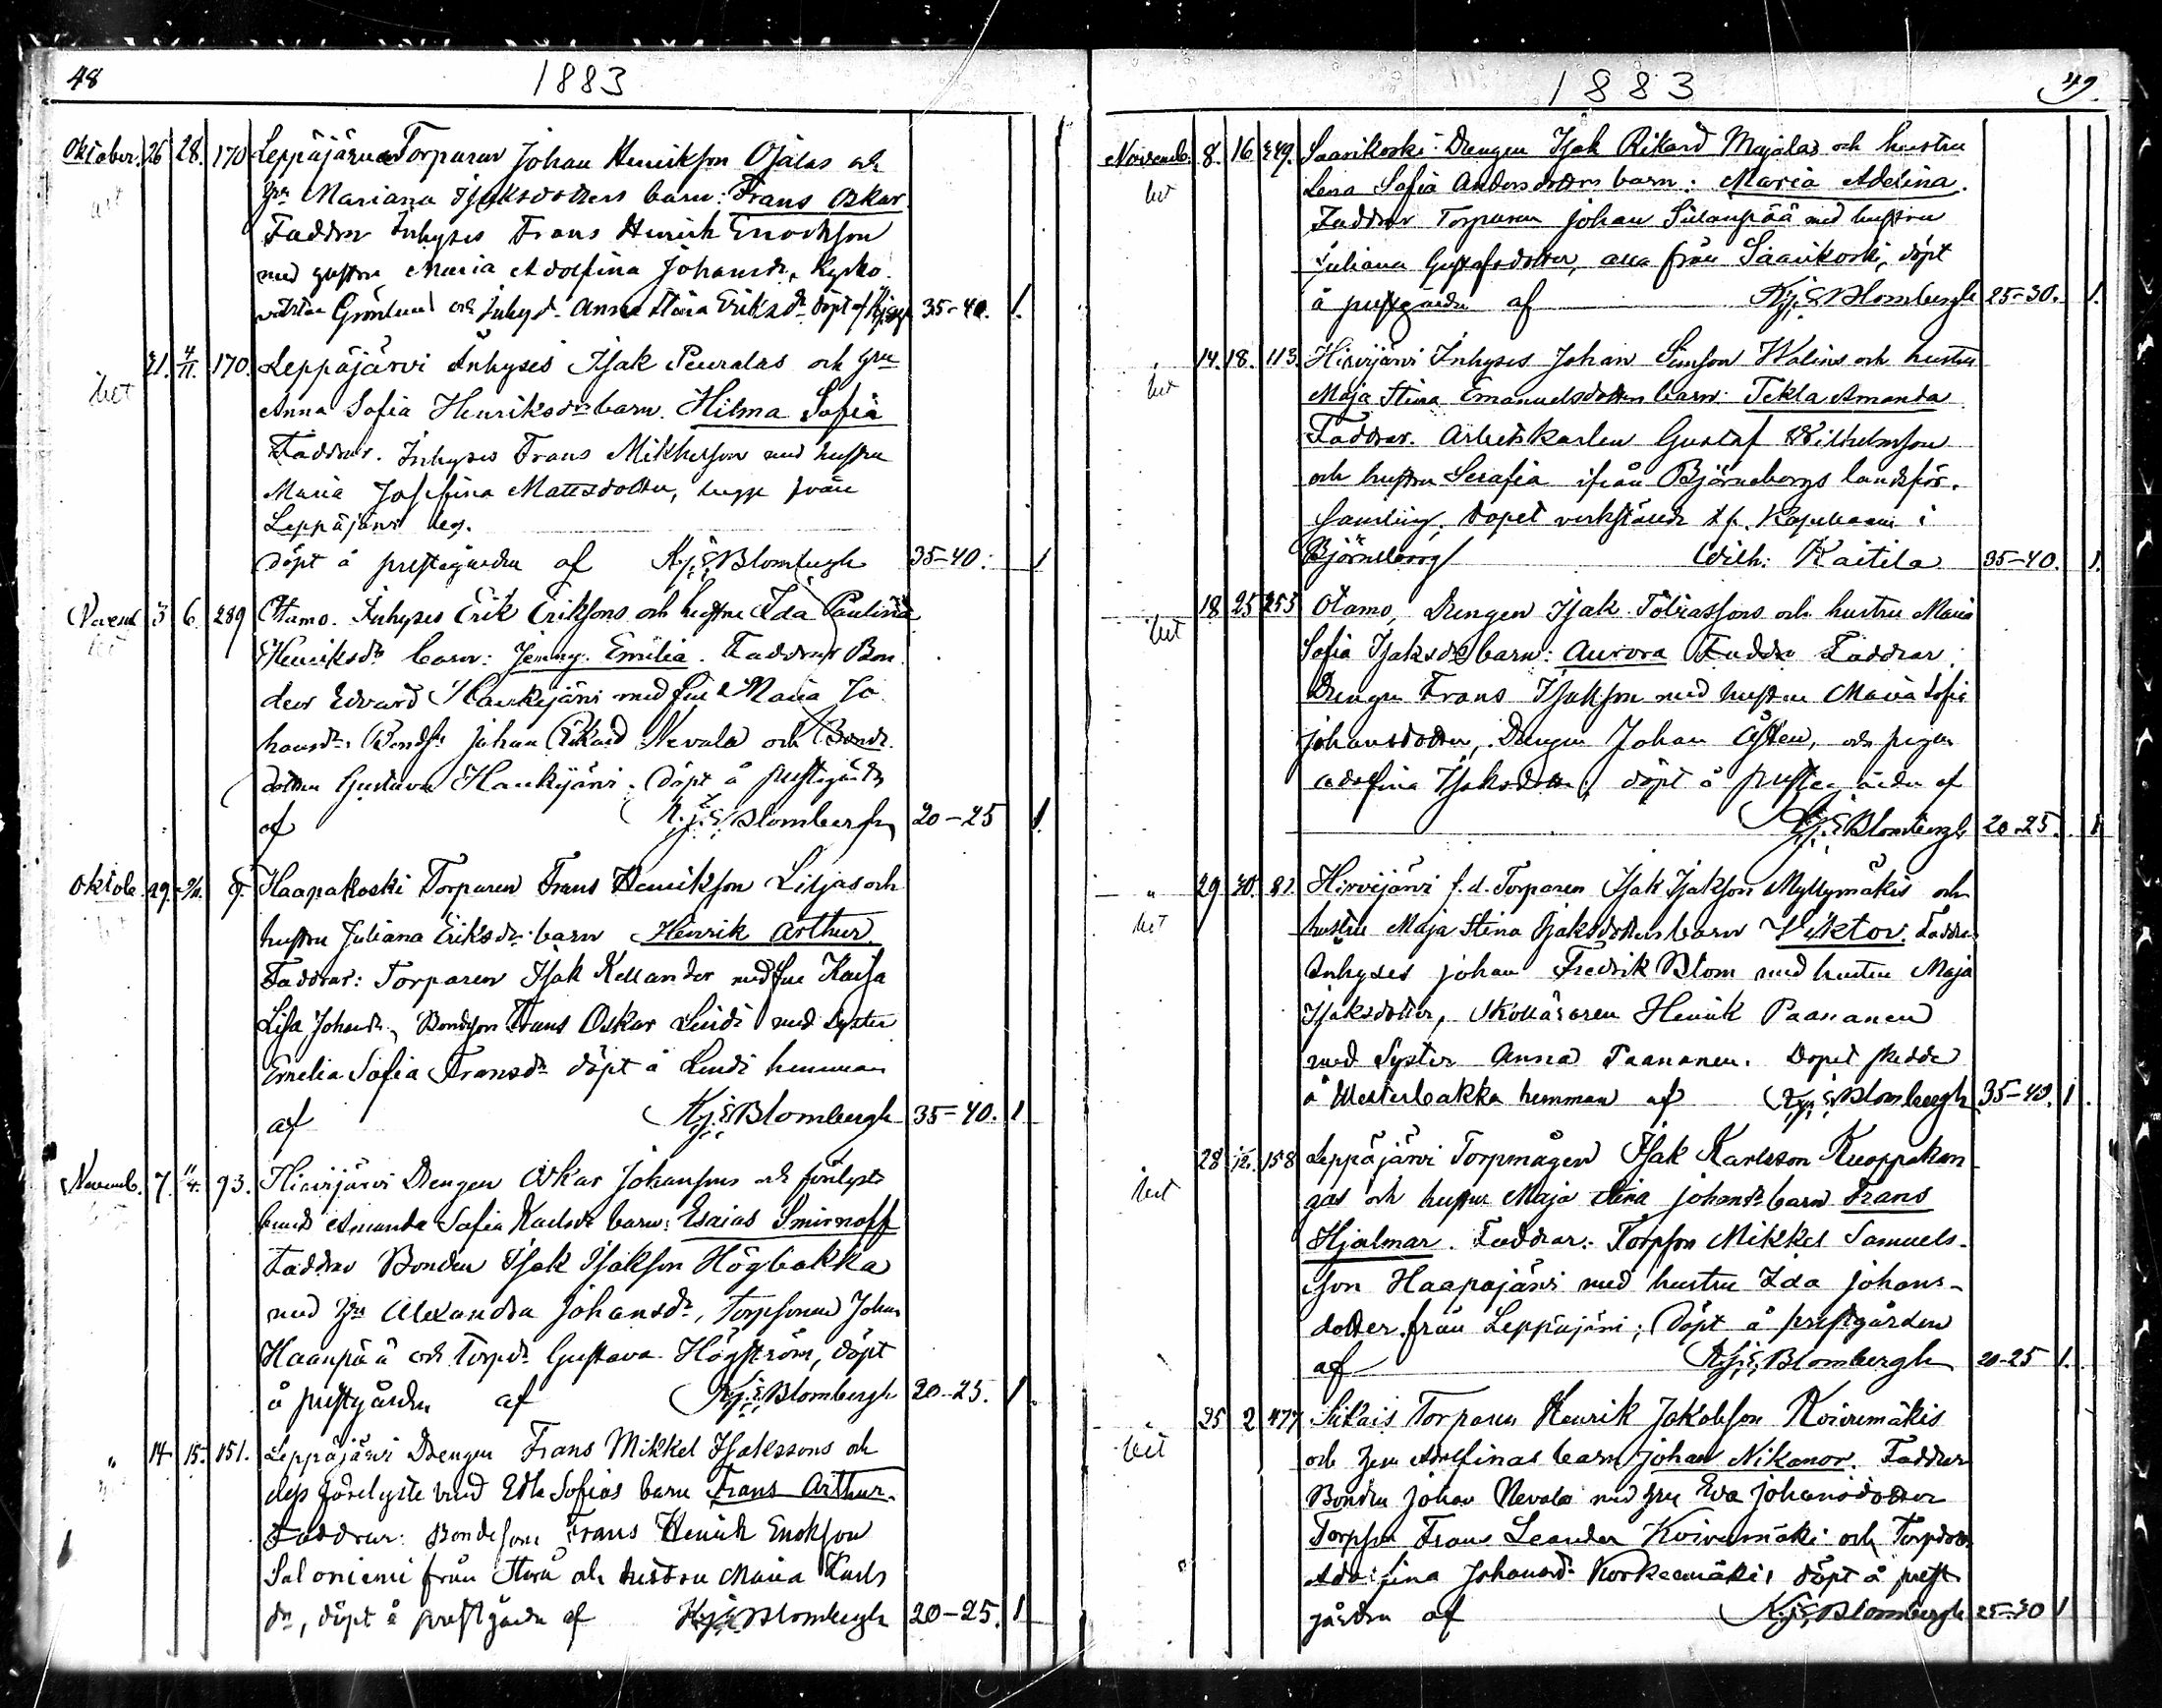 48
1883
Oktober. 26 28. 170 Leppäjärvi Torparen Johan Henrikson Ojalas och
hu Mariana Isaksdotters barn: Frans Oskar.
Faddrar Inhyses Frans Henrik Enockson
med hustru Maria Adolfina Johansdr, Kyrko
väktar Grönlund och Inhysd. Anna Stina Eriksdr döpt af 35-40. 1.
21. 4/11. 170. Leppäjärvi Inhyses Isak Peuralas och hu
Anna Sofia Henriksdrs barn. Hilma Sofia
Faddrar. Inhyses Frans Mikkelson med hustru
Maria Josefina Mattsdotter, begge från
Leppäjärvi
döpt å prestgården af Kj: E: Blombergh 35-40. 1
Novemb 3 6. 289 Otamo. Inhyses Erik Eriksons och hustru Ida Paulina
Henriksdr barn: Jenny Emilia. Faddrar Bon
den Edvard Haukijärvi med hu Maria Jo
hansdr, Johan Rikard Nevala och Bonde
dottren Gustava Haukijärvi. Döpt å prestgården
af K.j. E. Blombergh 20-25 1.
Oktob. 29. Haapakoski Torparen Frans Henrikson Liljas och
hustru Juliana Eriksdr. barn Henrik Arthur.
Faddrar: Torparen Isak Kellander med hu Kaisa
Lisa Johansdr, Bondeson Frans Oskar Lindi med Syster
Emelia Sofia Fransdr döpt å Lindi hemman
af Kj. E. Blombergh 35-40. 1
Novemb. 7. 11/4. 93. Hirvijärvi Drengen Oskar Johansons och förelyste
brud Amanda Sofia Karlsdr barn: Esaias Smirnoff
Faddrar Bonden Isak Isakson Högbakka
med hu Alexandra Johansdr, Torpsonen Johan
Haanpää och Torpdr Gustava Högström, döpt
å prestgården af Kj: E: Blombergh 20-25. 1.
" 14 15. 151. Leppäjärvi Drengen Frans Mikkel Isakssons och
dess förelyste brud Edla Sofias barn Frans Arthur.
Faddrar: Bondeson Frans Henrik Enokson
Saloniemi från och hustru Maria Karls
dr, döpt å prestgården af Kj: E: Blombergh 20-25. 1
1883
49.
Novemb. 8. 16 249. Saarikoski Drengen Isak Rikard Majalas och hustru
bet Lena Sofia Andersdotters barn: Maria Adelina.
Faddrar Torparen Johan Siltanpää med hustru
Juliana Gustafsdotter, alla från Saarikoski, döpt
å prestgården af Kj. E. Blombergh 25-30. 1.
14. 18. 113. Hirvijärvi Inhyses Johan Simson Walins och hustru
bet Maja Stina Emanuelsdotters barn: Tekla Amanda
Faddrar. Arbetskarlen Gustaf Wilhelmson
och hustru Serafia ifrån Björneborgs landsför.
samling. Dopet verkställdt af Kapellanen i
Björneborg Wilh. Kaitila 35-40. 1.
18 25 255 Otamo, Drengen Isak Tobiassons och hustru Maria
bet Sofia Isaksdr barn: Aurora Faddra Faddrar
Drengen Frans Isakson med hustru Maria Sofia
Johansdotter, Drengen Johan Åsten, och pigan
Adolfina Isaksdotter, döpt å prestegården af
Kj. E. Blombergh 20-25. 1
" 29 30. 82. Hirvijärvi f.d. Torparen Isak Isakson Myllymäkis och
bet hustru Maja Stina Isaksdotters barn Viktor. Faddrar
Inhyses Johan Fredrik Blom med hustru Maja
Isaksdotter, Skolläraren Henrik Paananen
med Syster Anna Paananen. Dopet skedde
å Westerbakka hemman af Kj: E: Blombergh 35-40. 1.
28 158 Leppäjärvi Torpmågen Isak Karlsson Kuoppakan
bet gas och hustru Maja Stina Johansdr barn Frans
Hjalmar. Faddrar: Torpson Mikkel Samuels-
son Haapajärvi med hustru Ida Johans-
dotter från Leppäjärvi; Döpt å prestgården
af Kj: E: Blombergh 20-25 1.
" 25 2 477 Siikais Torparen Henrik Jakobson Koivumäkis
bet och hu Adolfinas barn Johan Nikanor. Faddrar
Bonden Johan Nevala med hu Eva Johansdotter
Torpson Frans Leander Koivumäki och Torpdottr
Adolfina Johansdr Korkeemäki, döpt å prest
gården af Kj: E: Blombergh 25-30 1